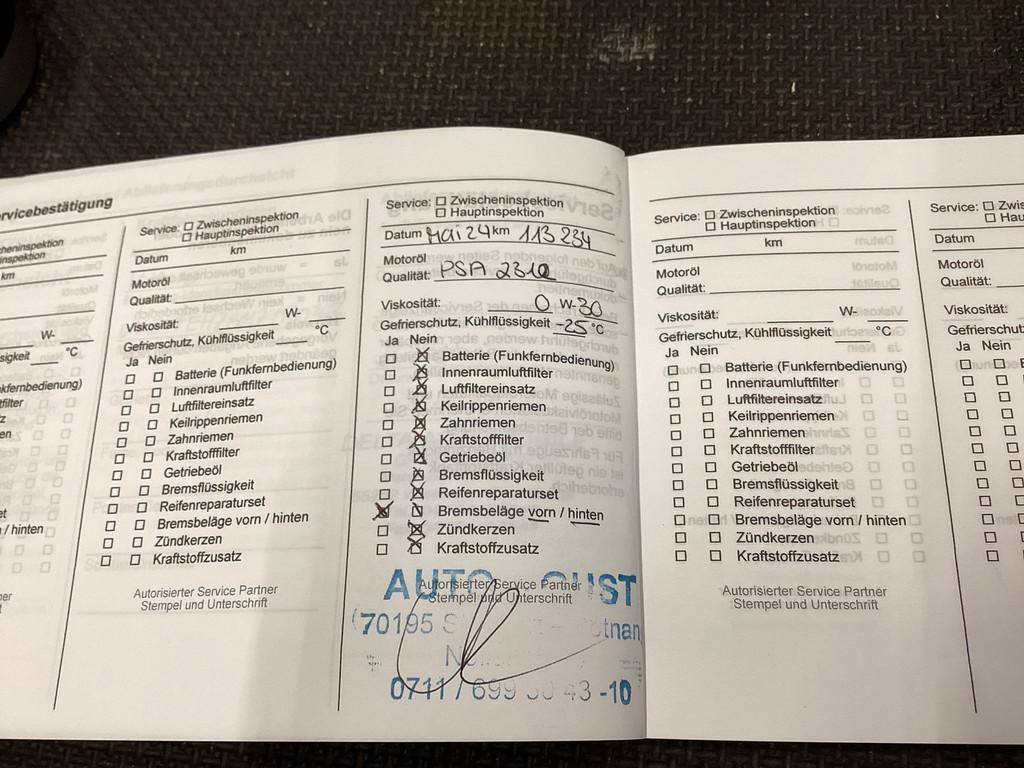 rvicebestätigung
heninspektion
nspektion
km
W-
sigkeit °C
kfernbedienung)
filter
tz
en
et
n / hinten
Service: ☐ Zwischeninspektion
☐ Hauptinspektion
Datum km
Motoröl
Qualität:
Viskosität: W-
Gefrierschutz, Kühlflüssigkeit °C
Ja Nein
☐ ☐ Batterie (Funkfernbedienung)
☐ ☐ Innenraumluftfilter
☐ ☐ Luftfiltereinsatz
☐ ☐ Keilrippenriemen
☐ ☐ Zahnriemen
☐ ☐ Kraftstofffilter
☐ ☐ Getriebeöl
☐ ☐ Bremsflüssigkeit
☐ ☐ Reifenreparaturset
☐ ☐ Bremsbeläge vorn / hinten
☐ ☐ Zündkerzen
☐ ☐ Kraftstoffzusatz
Autorisierter Service Partner
Stempel und Unterschrift
Service: ☐ Zwischeninspektion
☐ Hauptinspektion
Datum Mai 24 km 113 234
Motoröl
Qualität: PSA 2312
Viskosität: 0 W-30
Gefrierschutz, Kühlflüssigkeit -25 °C
Ja Nein
☐ ☒ Batterie (Funkfernbedienung)
☐ ☒ Innenraumluftfilter
☐ ☒ Luftfiltereinsatz
☐ ☒ Keilrippenriemen
☐ ☒ Zahnriemen
☐ ☒ Kraftstofffilter
☐ ☒ Getriebeöl
☐ ☒ Bremsflüssigkeit
☐ ☒ Reifenreparaturset
☒ ☐ Bremsbeläge vorn / hinten
☐ ☒ Zündkerzen
☐ ☒ Kraftstoffzusatz
Autorisierter Service Partner
Stempel und Unterschrift
AUTO
70195
0711 / 699 30 43 -10
Service: ☐ Zwischeninspektion
☐ Hauptinspektion
Datum km
Motoröl
Qualität:
Viskosität: W-
Gefrierschutz, Kühlflüssigkeit °C
Ja Nein
☐ ☐ Batterie (Funkfernbedienung)
☐ ☐ Innenraumluftfilter
☐ ☐ Luftfiltereinsatz
☐ ☐ Keilrippenriemen
☐ ☐ Zahnriemen
☐ ☐ Kraftstofffilter
☐ ☐ Getriebeöl
☐ ☐ Bremsflüssigkeit
☐ ☐ Reifenreparaturset
☐ ☐ Bremsbeläge vorn / hinten
☐ ☐ Zündkerzen
☐ ☐ Kraftstoffzusatz
Autorisierter Service Partner
Stempel und Unterschrift
Service: ☐ Zwisc
☐ Hau
Datum
Motoröl
Qualität:
Viskosität:
Gefriersch
Ja Nein